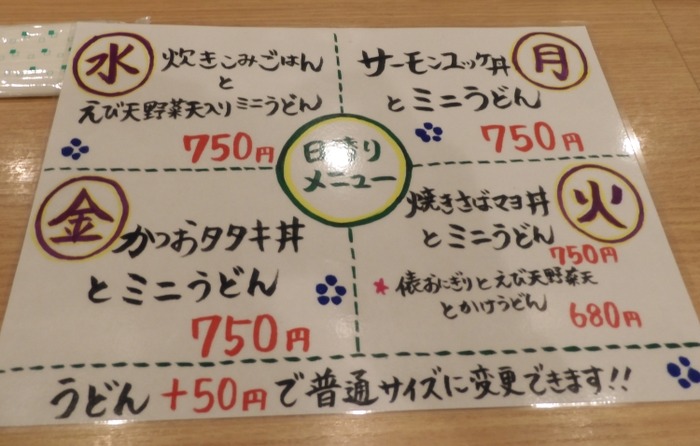 月
サーモンユッケ丼
とミニうどん
750円
火
焼きさばマヨ丼
とミニうどん
750円
俵おにぎりとえび天野菜天
とかけうどん
680円
水
炊きこみごはん
と
えび天野菜天入りミニうどん
750円
金
かつおタタキ丼
とミニうどん
750円
日替り
メニュー
うどん+50円で普通サイズに変更できます!!